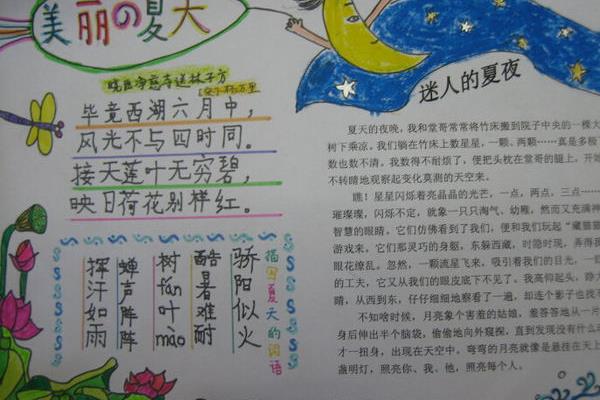 美丽の夏天
晓出净慈寺送林子方
杨万里
毕竟西湖六月中，
风光不与四时同。
接天莲叶无穷碧，
映日荷花别样红。
描写夏天的词语
骄阳似火
酷暑难耐
树 叶mào
蝉声阵阵
挥汗如雨
迷人的夏夜
夏天的夜晚，我和堂哥常常将竹床搬到院子中央的一棵大
树下乘凉。我们躺在竹床上数星星，一颗、两颗……真是多极
数也数不清。我数得不耐烦了，便把头枕在堂哥的腿上，开始
不转睛地观察起变化莫测的天空来。
瞧！星星闪烁着亮晶晶的光芒，一点，两点，三点……
璀璨璨，闪烁不定，就象一只只淘气、幼稚，然而又充满神
智慧的眼睛。它们仿佛看到了我们，便和我们玩起“藏猫猫
游戏来。它们那灵巧的身躯，东躲西藏，时隐时现，弄得我
眼花缭乱。忽然，一颗流星飞来，吸引着我们的目光，一眨
的工夫，它又从我们的眼皮底下不见了。我高仰起头，睁大
睛，从西到东，仔仔细细地察看了一遍，却连个影子也找不
不知啥时候，月亮象个害羞的姑娘，羞答答地从一片
身后伸出半个脑袋，偷偷地向外窥探，直到发现没有什么动
才一扭身，出现在天空中。弯弯的月亮就像是悬挂在天上
盏明灯，照亮你、我、他，照亮每个人。